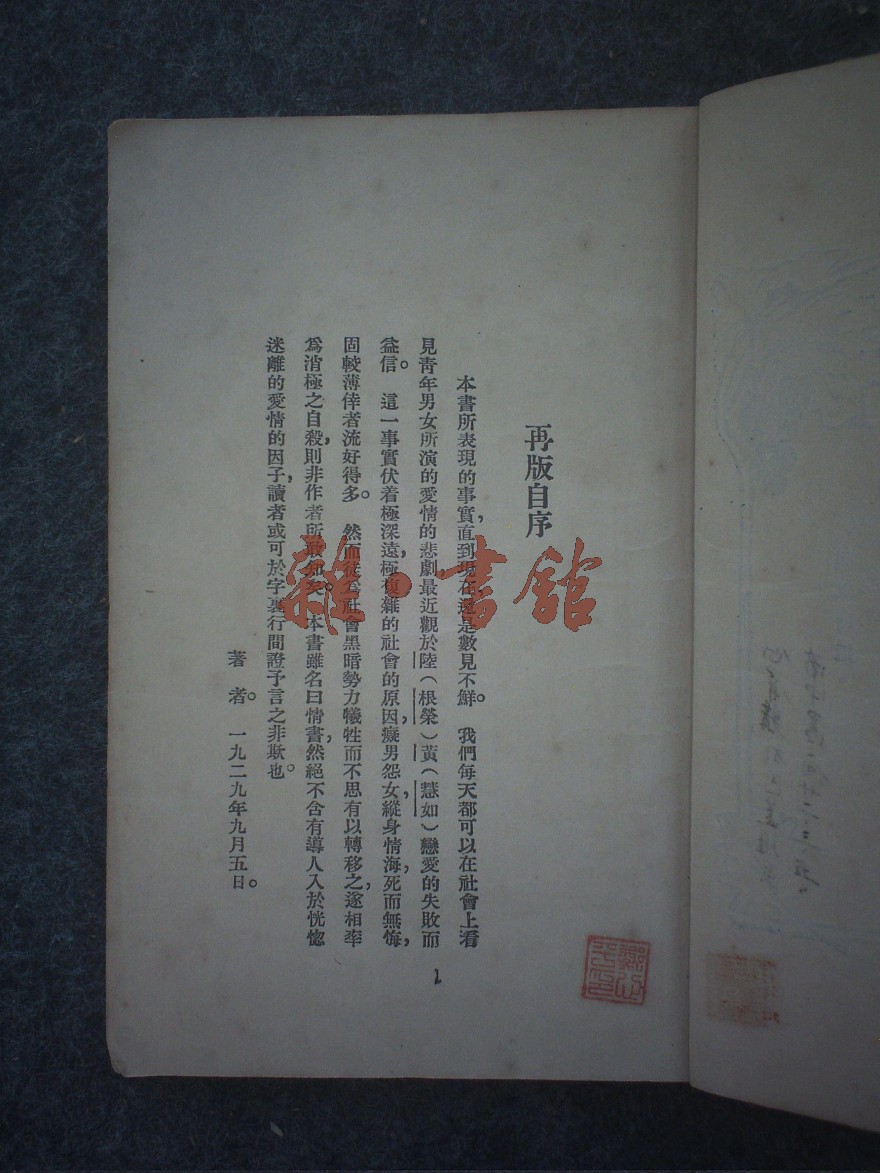 再版自序
本書所表現的事實，直到現在，還是數見不鮮。我們每天都可以在社會上看
見青年男女所演的愛情的悲劇，最近觀於陸（根榮）黃（慧如）戀愛的失敗而
益信。這一事實伏着極深遠，極複雜的社會的原因，癡男怨女，縱身情海，死而無悔，
固較薄倖者流好得多。然而徒爲社會黑暗勢力犧牲而不思有以轉移之，遂相率
爲消極之自殺，則非作者所敢知矣。本書雖名曰情書，然絕不含有導人入於恍惚
迷離的愛情的因子，讀者或可於字裏行間證予言之非欺也。
著者。一九二九年九月五日。
1
雜·書館